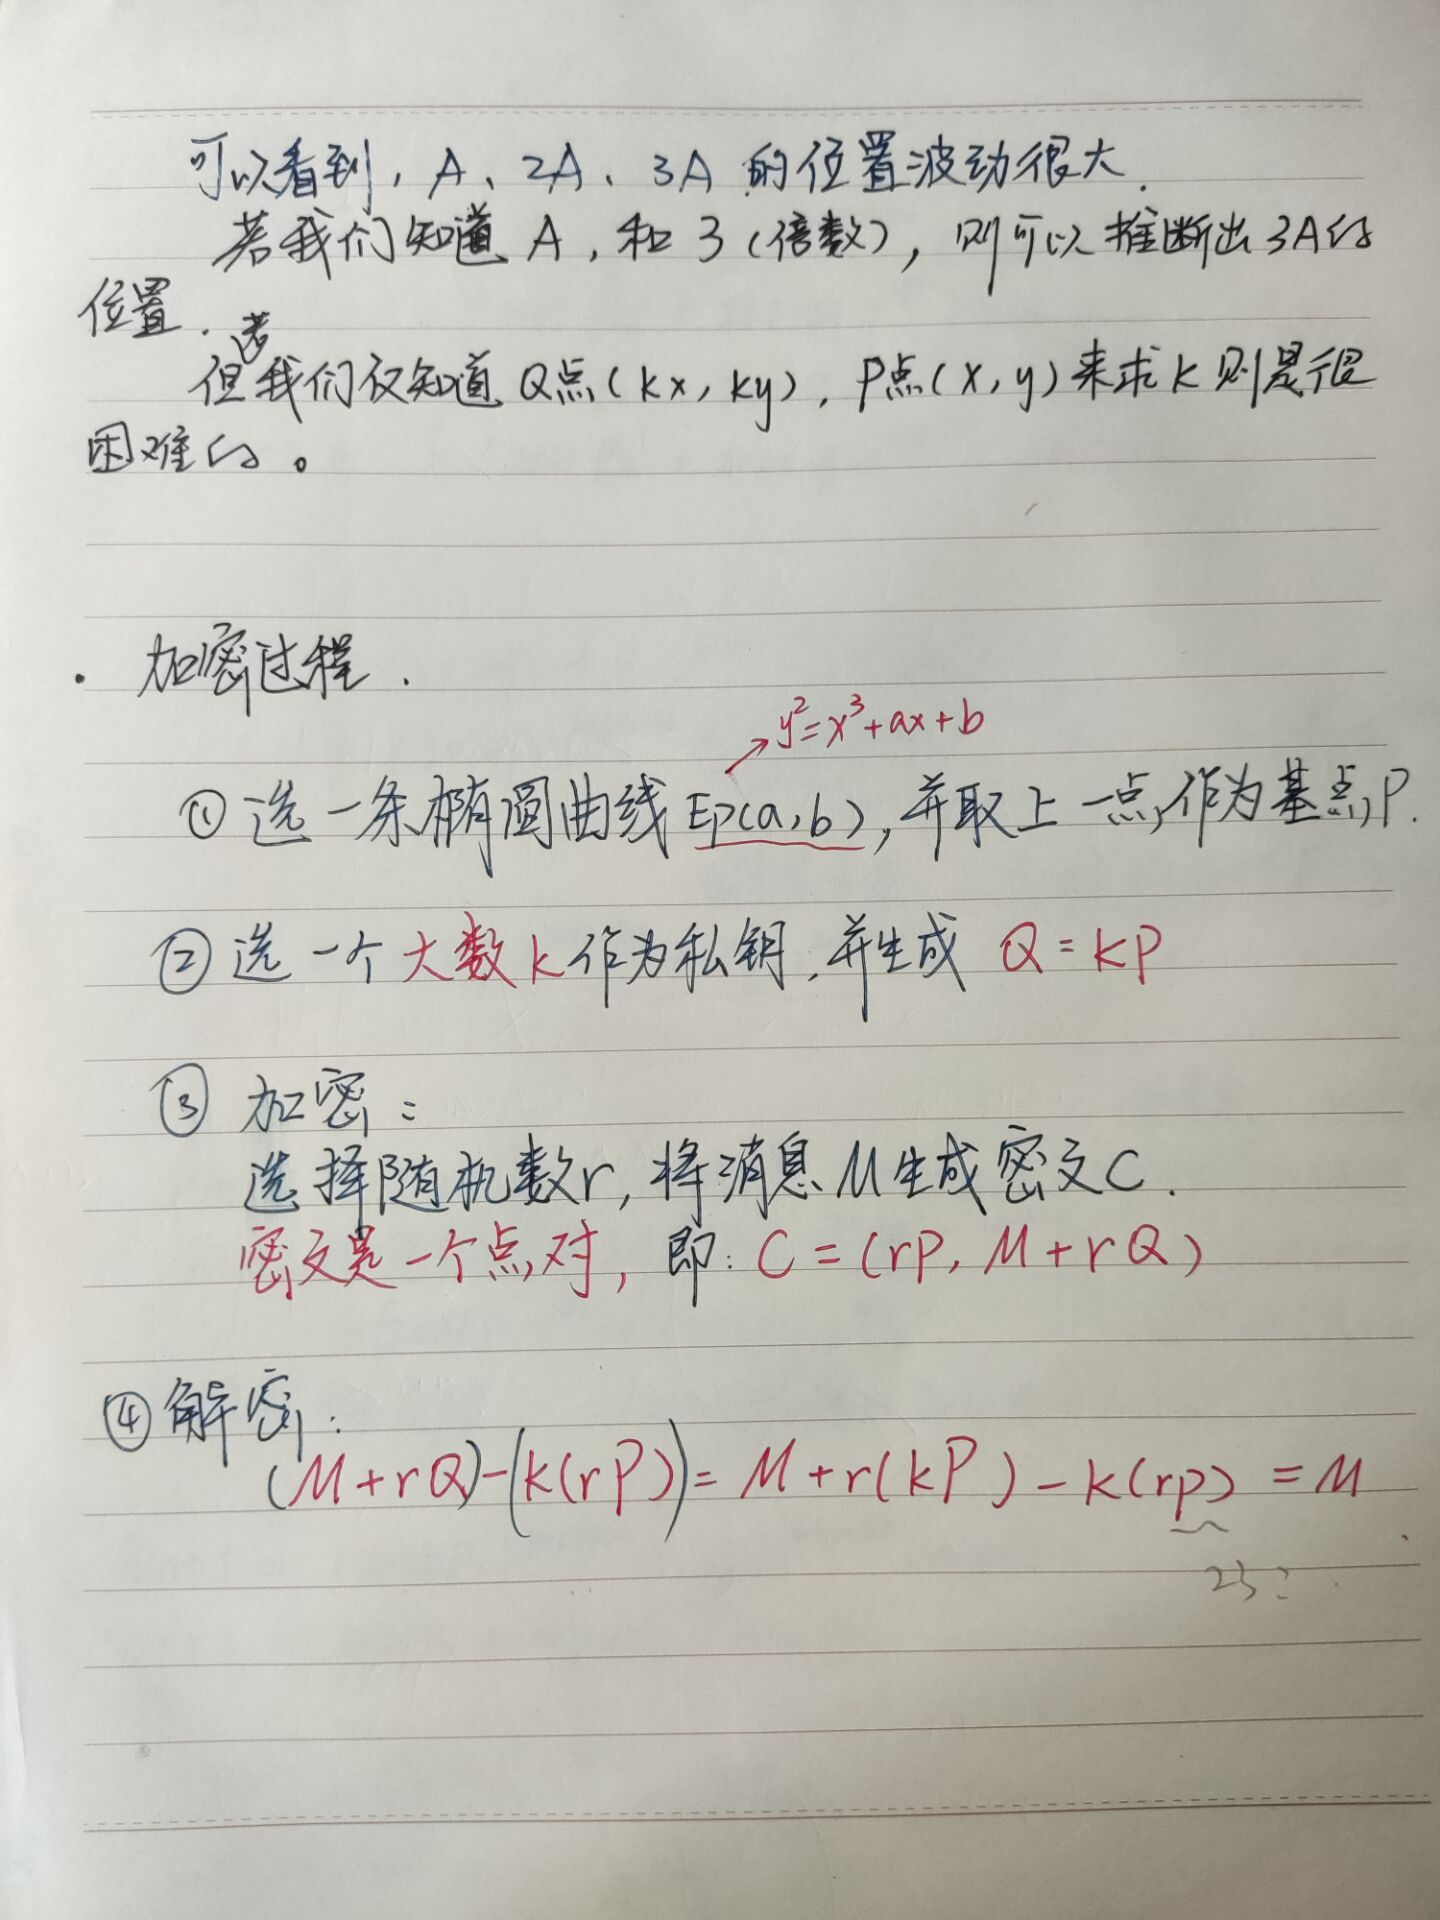 可以看到，A、2A、3A的位置波动很大.
若我们知道A，和3（倍数），则可以推断出3A的
位置.
若
但我们仅知道Q点(kx, ky)，P点(x, y)来求k则是很
困难的。
· 加密过程.
y²=x³+ax+b
①选一条椭圆曲线Ep(a,b)，并取上一点，作为基点P.
②选一个大数k作为私钥，并生成 Q=kP
③ 加密：
选择随机数r，将消息M生成密文C.
密文是一个点对，即：C=(rP, M+rQ)
④解密：
(M+rQ)-(k(rP))=M+r(kP)-k(rp)=M